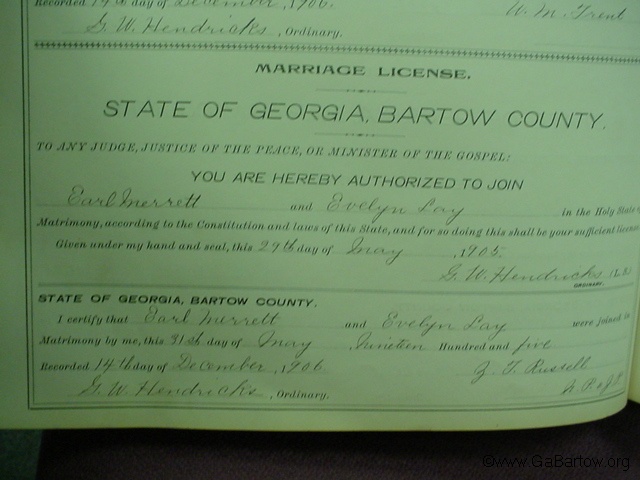 Recorded 14th day of December, 1906.
W. M. Trent
G. W. Hendricks, Ordinary.
MARRIAGE LICENSE.
STATE OF GEORGIA, BARTOW COUNTY.
TO ANY JUDGE, JUSTICE OF THE PEACE, OR MINISTER OF THE GOSPEL:
YOU ARE HEREBY AUTHORIZED TO JOIN
Earl Merrett and Evelyn Lay in the Holy State
Matrimony, according to the Constitution and laws of this State, and for so doing this shall be your sufficient license
Given under my hand and seal, this 29th day of May, 1905.
G. W. Hendricks (L.S.)
ORDINARY.
STATE OF GEORGIA, BARTOW COUNTY.
I certify that Earl Merrett and Evelyn Lay were joined in
Matrimony by me, this 31st day of May, Nineteen Hundred and five
Recorded 14th day of December, 1906. Z. T. Russell
G. W. Hendricks, Ordinary. N. P. & J. P.
©www.GaBartow.org